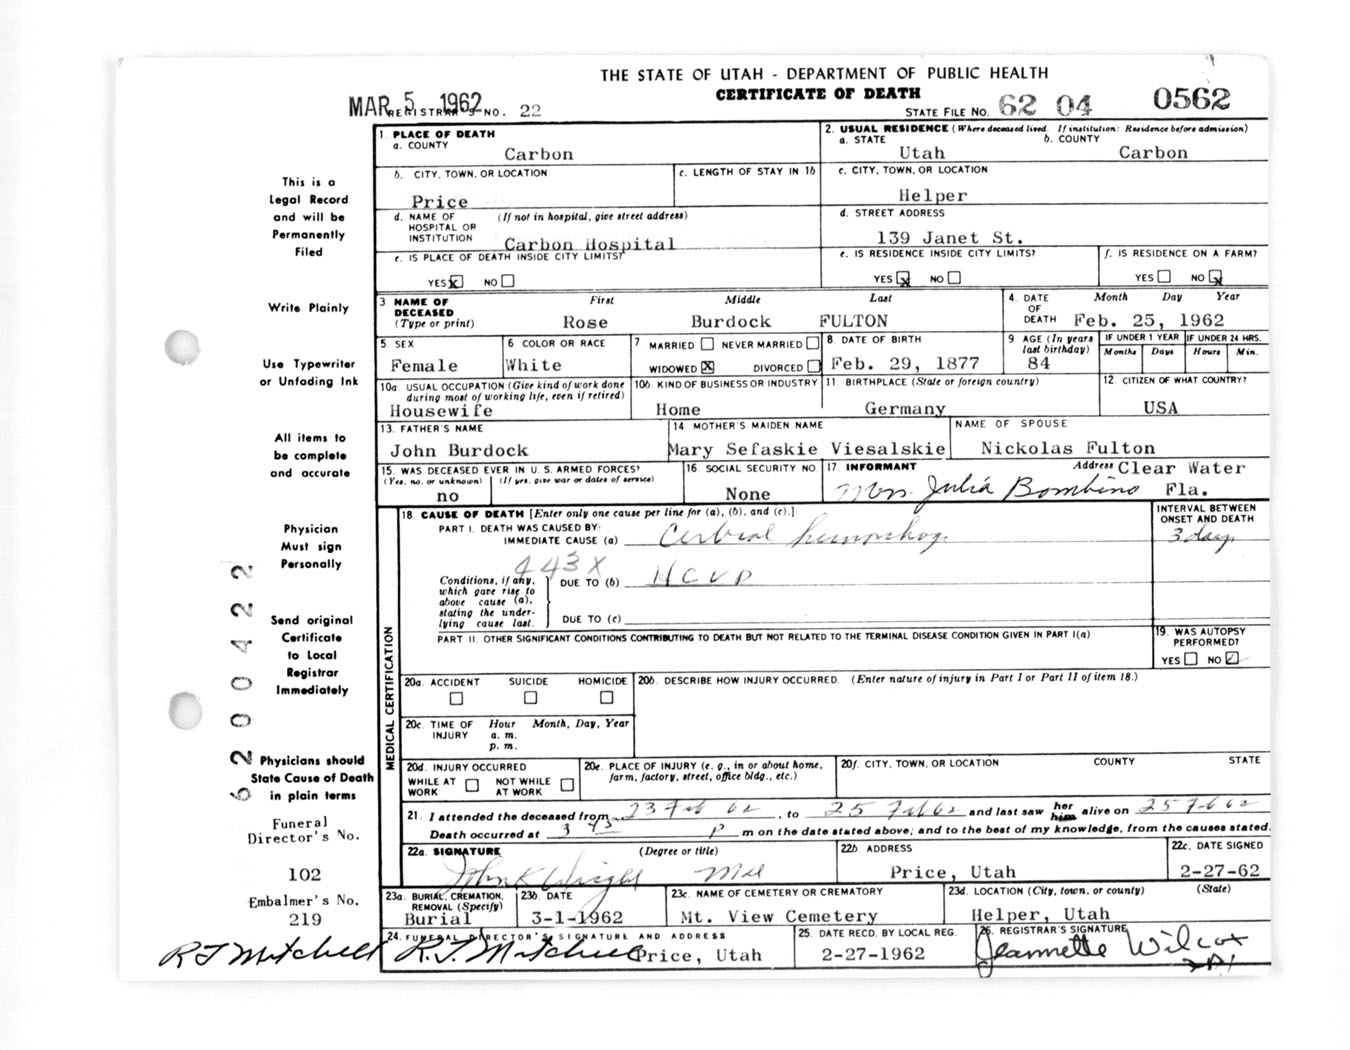 THE STATE OF UTAH - DEPARTMENT OF PUBLIC HEALTH
CERTIFICATE OF DEATH
MAR 5 1962
REGISTRAR'S NO. 22
STATE FILE NO. 62 04 0562
1. PLACE OF DEATH
a. COUNTY
Carbon
2. USUAL RESIDENCE (Where deceased lived. If institution: Residence before admission)
a. STATE b. COUNTY
Utah Carbon
b. CITY, TOWN, OR LOCATION
Price
c. LENGTH OF STAY IN 1b
c. CITY, TOWN, OR LOCATION
Helper
d. NAME OF HOSPITAL OR INSTITUTION (If not in hospital, give street address)
Carbon Hospital
d. STREET ADDRESS
139 Janet St.
e. IS PLACE OF DEATH INSIDE CITY LIMITS?
YES NO
e. IS RESIDENCE INSIDE CITY LIMITS?
YES NO
f. IS RESIDENCE ON A FARM?
YES NO
3. NAME OF DECEASED (Type or print)
First Middle Last
Rose Burdock FULTON
4. DATE OF DEATH
Month Day Year
Feb. 25, 1962
5. SEX
Female
6 COLOR OR RACE
White
7 MARRIED NEVER MARRIED
WIDOWED X DIVORCED
8. DATE OF BIRTH
Feb. 29, 1877
9 AGE (In years last birthday)
84
IF UNDER 1 YEAR
Months Days
IF UNDER 24 HRS.
Hours Min.
10a. USUAL OCCUPATION (Give kind of work done during most of working life, even if retired)
Housewife
10b. KIND OF BUSINESS OR INDUSTRY
Home
11. BIRTHPLACE (State or foreign country)
Germany
12. CITIZEN OF WHAT COUNTRY?
USA
13. FATHER'S NAME
John Burdock
14 MOTHER'S MAIDEN NAME
Mary Sefaskie Viesalskie
NAME OF SPOUSE
Nickolas Fulton
15. WAS DECEASED EVER IN U.S. ARMED FORCES?
(Yes, no, or unknown) (If yes, give war or dates of service)
no
16. SOCIAL SECURITY NO.
None
17 INFORMANT Address
Mrs. Julia Bombino Clear Water Fla.
MEDICAL CERTIFICATION
18. CAUSE OF DEATH [Enter only one cause per line for (a), (b), and (c).]
PART I. DEATH WAS CAUSED BY:
IMMEDIATE CAUSE (a) Cerbral hemorrhage
INTERVAL BETWEEN ONSET AND DEATH
3 days
443X
Conditions, if any, which gave rise to above cause (a), stating the underlying cause last.
DUE TO (b) HCVD
DUE TO (c)
PART II. OTHER SIGNIFICANT CONDITIONS CONTRIBUTING TO DEATH BUT NOT RELATED TO THE TERMINAL DISEASE CONDITION GIVEN IN PART I(a)
19. WAS AUTOPSY PERFORMED?
YES NO
20a. ACCIDENT SUICIDE HOMICIDE
20b. DESCRIBE HOW INJURY OCCURRED. (Enter nature of injury in Part I or Part II of item 18.)
20c. TIME OF INJURY
Hour Month, Day, Year
a. m.
p. m.
20d. INJURY OCCURRED
WHILE AT WORK NOT WHILE AT WORK
20e. PLACE OF INJURY (e. g., in or about home, farm, factory, street, office bldg., etc.)
20f. CITY, TOWN, OR LOCATION COUNTY STATE
21. I attended the deceased from 23 Feb 62, to 25 Feb 62 and last saw her him alive on 25 Feb 62
Death occurred at 3 45 P m on the date stated above; and to the best of my knowledge, from the causes stated.
22a. SIGNATURE (Degree or title)
John K Wright Md
22b. ADDRESS
Price, Utah
22c. DATE SIGNED
2-27-62
23a. BURIAL, CREMATION, REMOVAL (Specify)
Burial
23b. DATE
3-1-1962
23c. NAME OF CEMETERY OR CREMATORY
Mt. View Cemetery
23d. LOCATION (City, town, or county) (State)
Helper, Utah
24. FUNERAL DIRECTOR'S SIGNATURE AND ADDRESS
R.T. Mitchell Price, Utah
25. DATE RECD. BY LOCAL REG.
2-27-1962
26. REGISTRAR'S SIGNATURE
Jeannette Wilcox
This is a
Legal Record
and will be
Permanently
Filed
Write Plainly
Use Typewriter
or Unfading Ink
All items to
be complete
and accurate
Physician
Must sign
Personally
Send original
Certificate
to Local
Registrar
Immediately
Physicians should
State Cause of Death
in plain terms
Funeral
Director's No.
102
Embalmer's No.
219
R T Mitchell